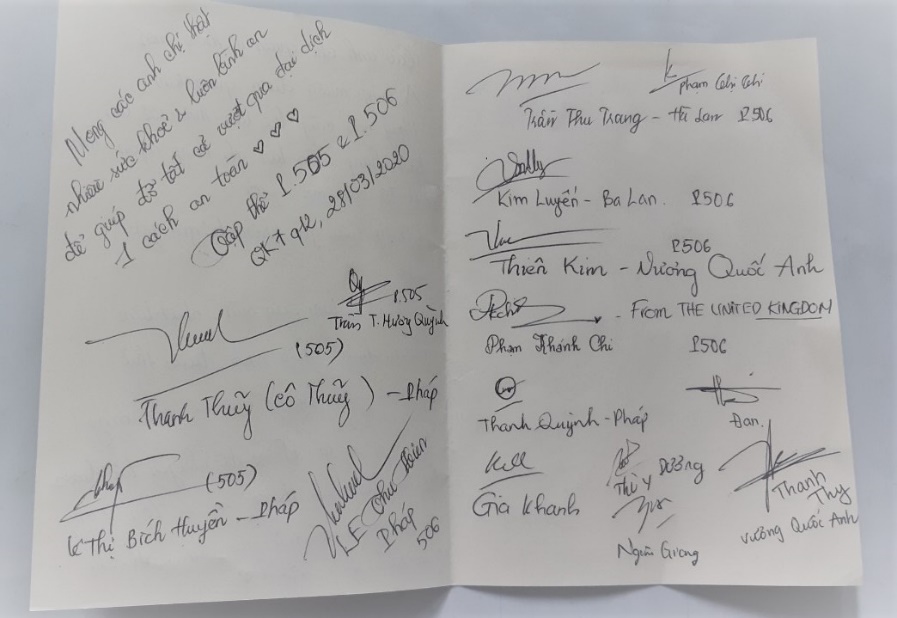 Mong các anh chị thật
nhiều sức khoẻ & luôn bình an
để giúp đỡ tất cả vượt qua đại dịch
1 cách an toàn ♡ ♡ ♡
Tập thể P.505 & P.506
QK7 q12, 28/03/2020
P.505
Trần T. Hương Quỳnh
(505)
Thanh Thuỹ (cô Thuỹ) - Pháp
(505)
Lê Thị Bích Huyền - Pháp
LE
Pháp
506
Phạm
Trần Thu Trang - Hà Lan P.506
Kim Luyến - Ba Lan. P506
P506
Thiên Kim - Vương Quốc Anh
- From THE UNITED KINGDOM
Phạm Khánh Chi P506
Thanh Quỳnh - Pháp
Đan.
Gia Khanh
Thùy Dương
Thanh
Thy
Vương Quốc Anh
Ngân Giang